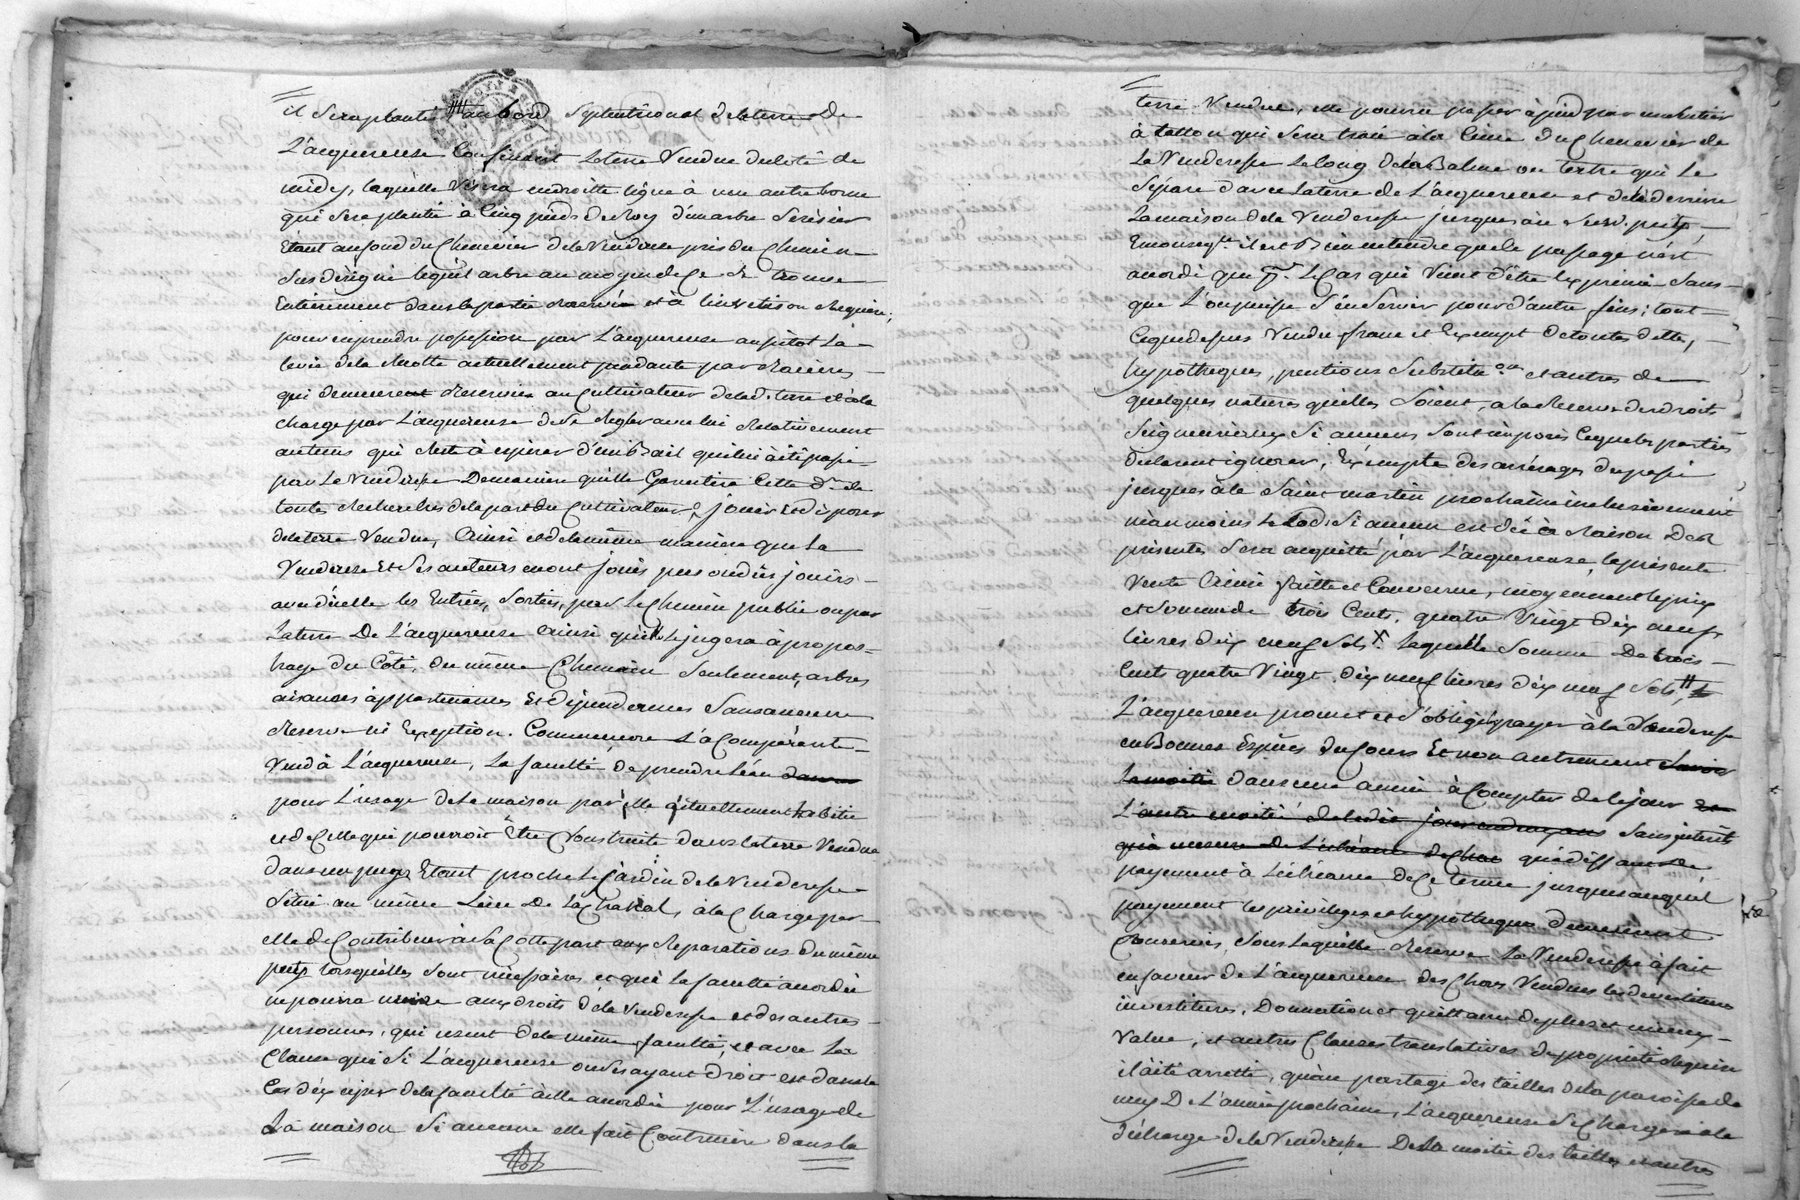 il sera planté au bord septentrional de la terre de
L'acquereuse Confinant la terre Vendue du coté de
midy, laquelle Vizera en droitte ligne à une autre borne
qui sera plantée à Cinq pieds de Roy d'un arbre Serisier
Etant au fond du Chenevier de la Venderesse près du Chemin
Sus désigné lequel arbre au moyen de Ce se trouve
Entierement dans la partie réservée et à lieu Requiere,
pour en prendre possession par L'acquereuse aussitôt la
levée de la Recolte actuellement pendante par Racines
qui demeurent Reservées au Cultivateur de lad. terre et à la
charge par L'acquereuse de se Regler avec lui Relativement
au tems qui Reste à expirer d'un Bail qui lui à été passé
par la Venderesse De maniere qu'elle Garentira Cette dre de
toutes Recherches de la part du Cultivateur, jouir et disposer
de la terre Vendue, Ainsi et de la même maniere que la
Venderesse Et Ses auteurs en ont jouis pu ou dû jouir
avec d'icelle les Entrées, Sorties, par le Chemin public ou par
la terre De L'acquereuse Ainsi qu'elle jugera à propos
haye du Côté, du même Chemin Seulement, arbres
aisances appartenances Et dépendances Sans aucune
Reserve ni Exception. Comme encore La Comparante
Vend à L'acquereuse, la faculté de prendre l'eau
pour L'usage de la maison par elle actuellement habitée
et de Celle qui pourroit Être Construite dans la terre Vendue
dans un puys Etant proche le jardin de la Venderesse
Situé au même Lieu De La Chattal, à la Charge par
elle de Contribuer à sa Cotte part aux Réparations du même
puys lorsqu'elles sont nécessaires et que la faculté accordée
ne pourra nuire aux droits de la Venderesse et des autres
personnes, qui usent de la même faculté, et avec La
Clause que Si L'acquereuse ou ses ayant Droit est dans le
Cas d'user de la faculté à elle accordée pour L'usage de
La maison Si aucune elle fait Contruire dans la
terre Vendue, elle pourra passer à pied par un sentier
à tallon qui Sera tracé à la Cime du Chenevier de
La Venderesse le long de la Balme ou tertre qui Le
Separe d'avec la terre de L'acquereuse et de là derriere
la maison de la Venderesse jusques au susd. puys
Et il est Bien entendu que le passage n'est
acordé que pr. le Cas qui Vient d'être Exprimé Sans
que L'on puisse S'en Servir pour d'autre fins; tout
Ce que dessus Vendu franc et Exempt de toutes dettes,
hypotheques, pentions Substitons et autres de
quelques natures qu'elles Soient, a la Reserve des droits
Seigneuriaux Si aucuns Sont imposés Ce que les parties
declarent ignorer, Exempte des arrérages du passé
jusques à la Saint martin prochaine inclusivement
néanmoins Le Lods Si aucun est dû à Raison De la
présente, Sera acquitté par L'acquereuse, la présente
Vente Ainsi faitte et Convenue, moyennant le prix
et Somme de trois Cents, quatre Vingt dix neuf
livres dix neuf sols X. laquelle Somme De trois
Cents quatre Vingt, dix neuf livres dix neuf sols, #
L'acquereuse promet et s'oblige payer à la Venderesse
en Bonnes Espèces du Cours Et non autrement Savoir
la moitié dans une année à Compter de Ce jour
L'autre moitié Sans interêts
qu'à mesure De L'échéance de Chac qu'à diffaut de
payement à L'échéance De Ce terme jusques auquel
payement les privileges et hypotheques demeurent
Conservés, Sous laquelle Reserve La Venderesse à fait
en faveur de L'acquereuse des Choses Vendues les devestitures
investitures, Donnation et quittance de plus et mieux
Value, et autres Clauses translatives de propriété Requise
il à été arretté, qu'au partage des tailles de la paroisse de
De L'année prochaine, L'acquereuse Se Chargera à la
décharge de la Venderesse De la moitié des tailles et autres